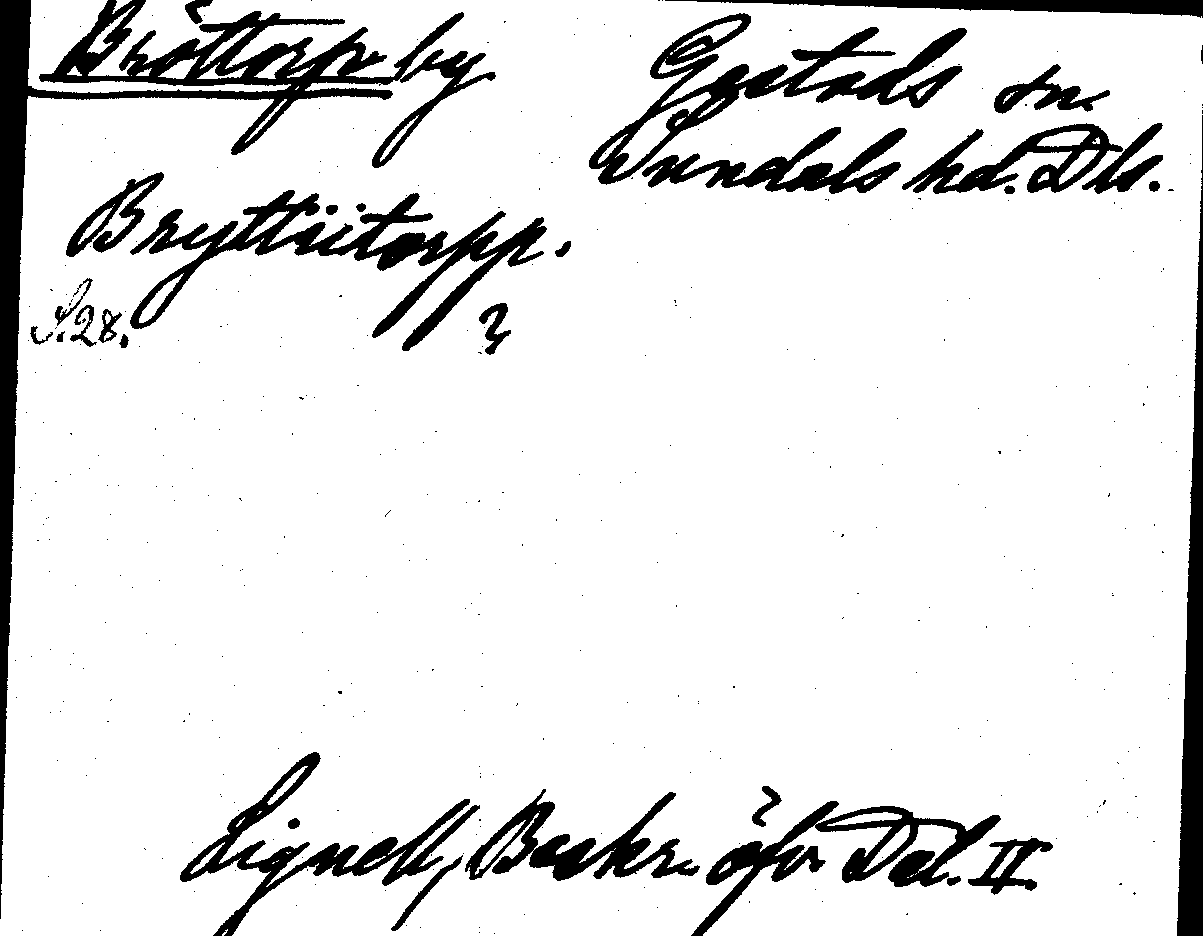 Bröttorp by
Gestads sn.
Sundals hd. Dls.
Bryttiitorpp.
S. 28.
?
Lignell, Beskr. öfv. Dal. II.